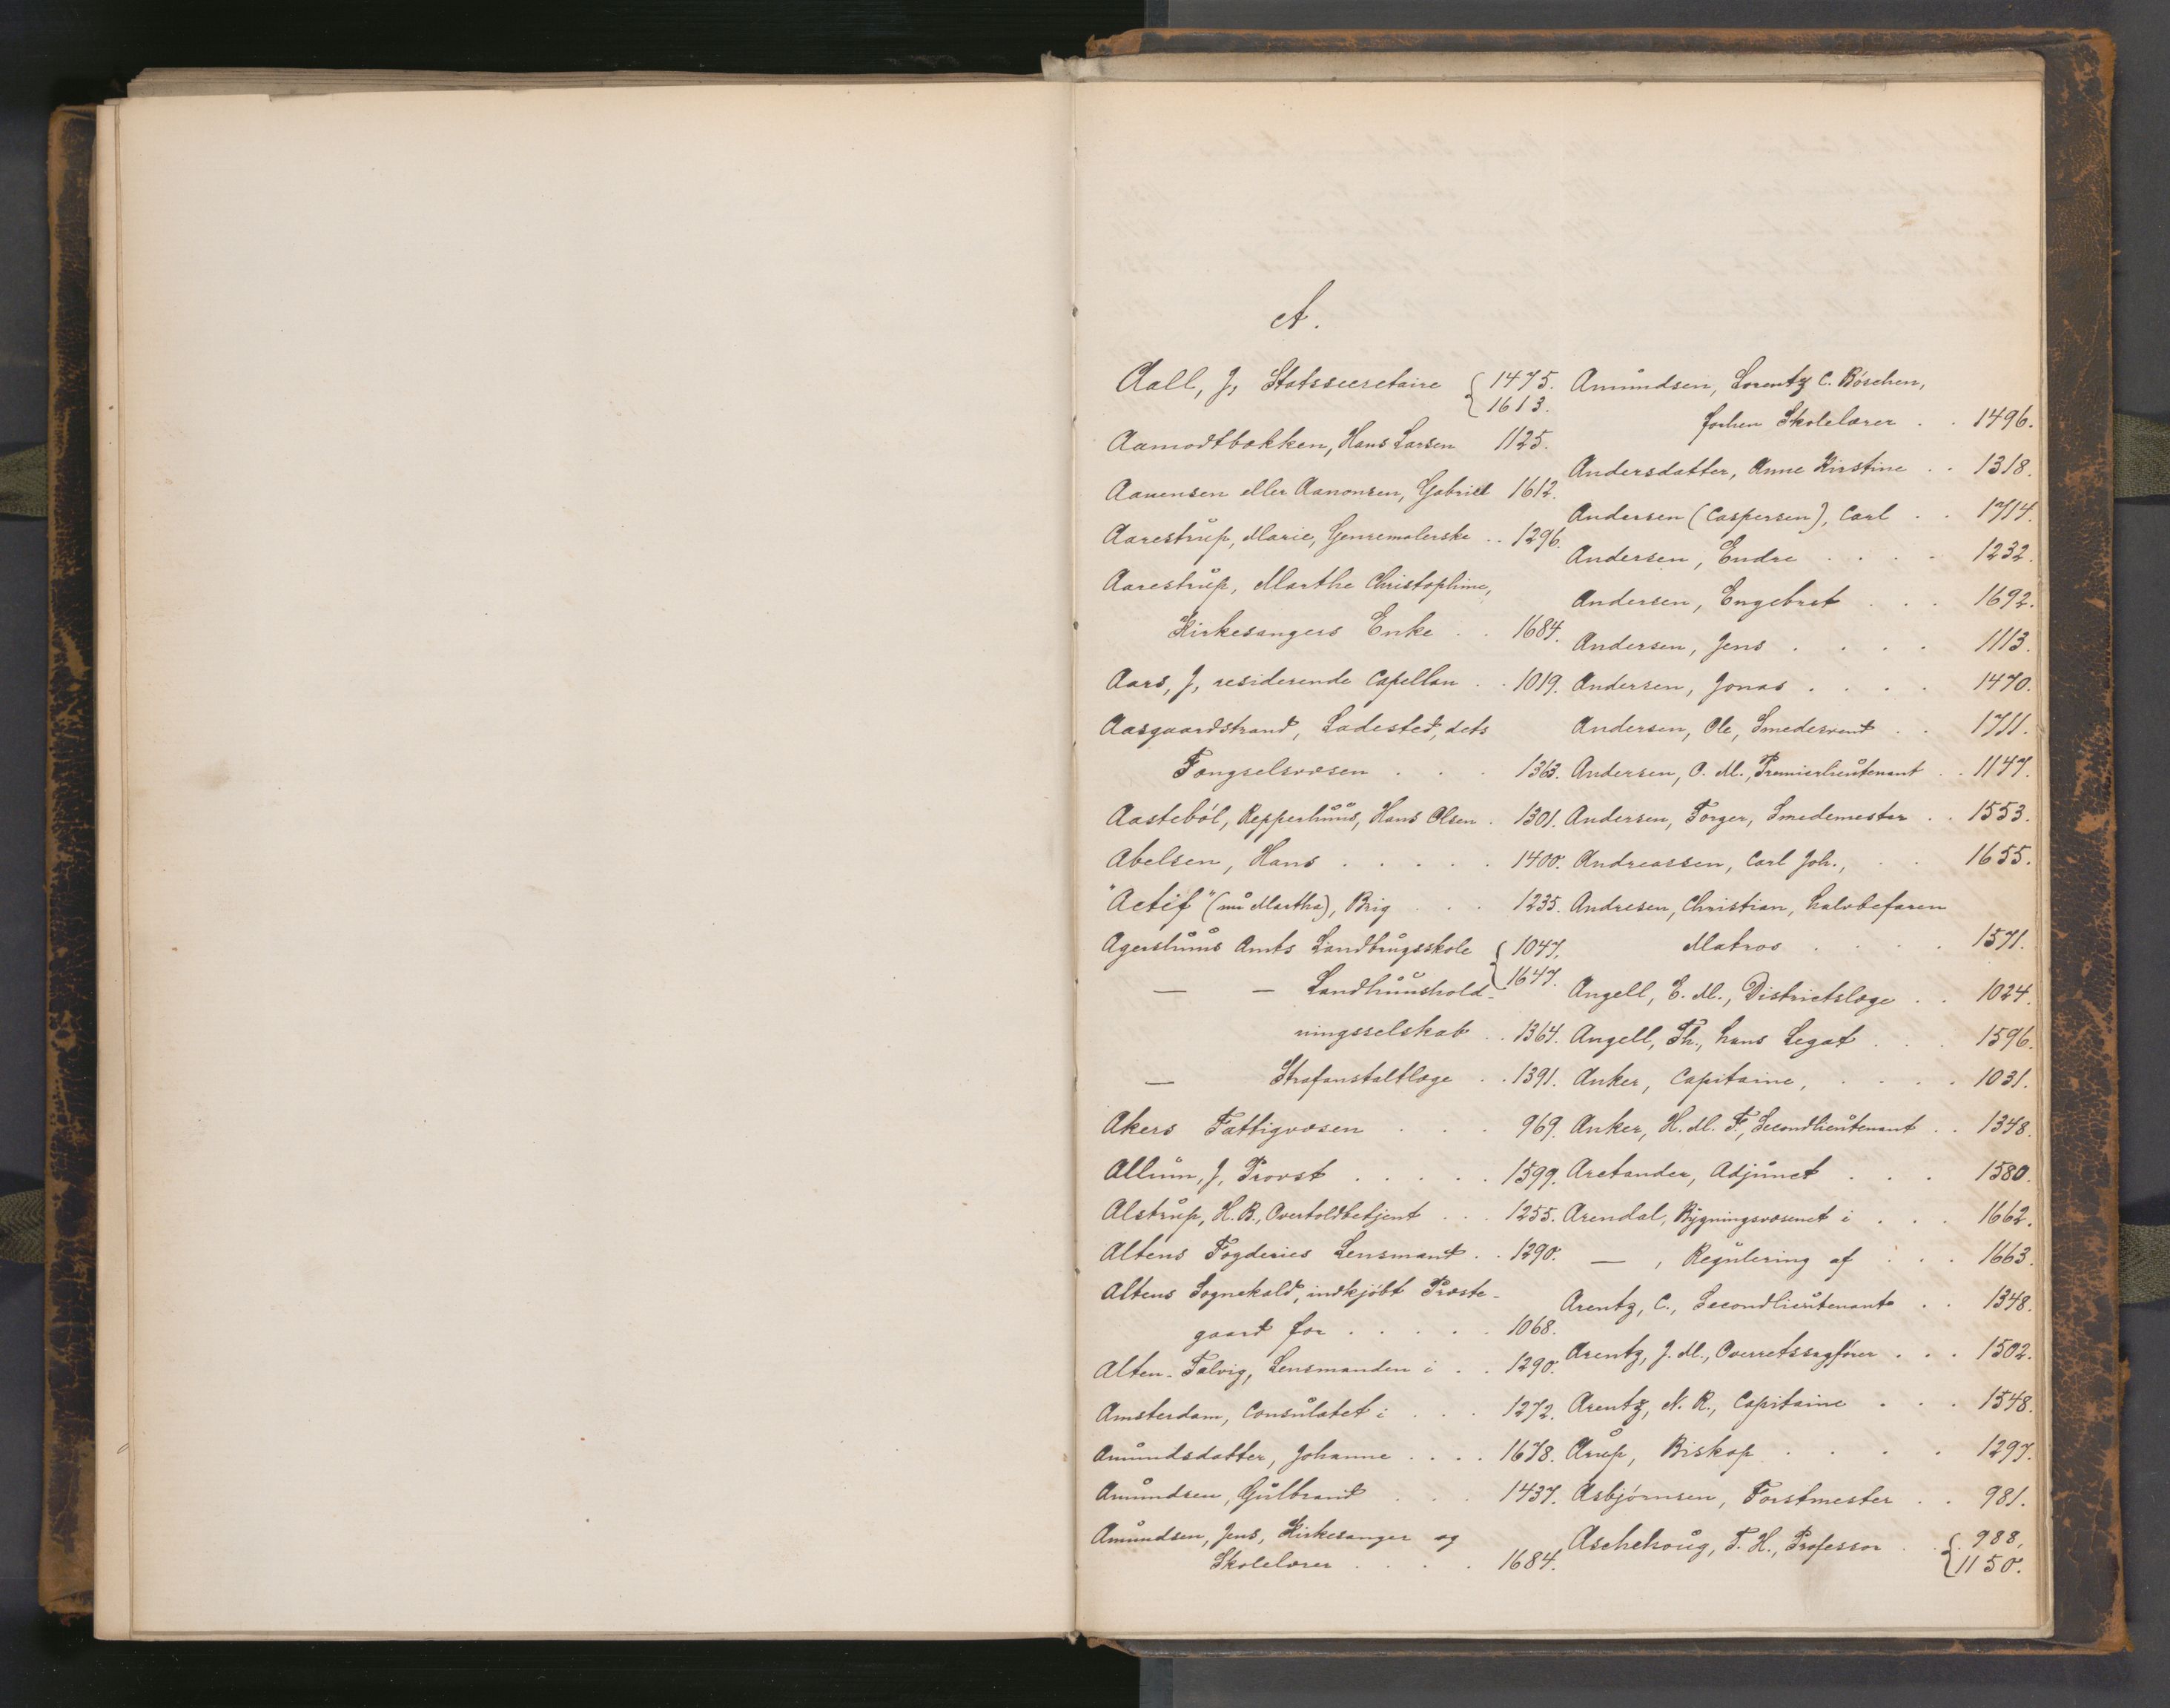 A.
Aall, J, Statssecretaire { 1475.
1613.
Aamodtbakken, Hans Larsen 1125.
Aanensen eller Aanonsen, Gabriel 1612.
Aarestrup, Marie, Genremalerske . . 1296.
Aarestrup, Marthe Christophine,
Kirkesangers Enke . . 1684.
Aars, J, residerende Capellan . . 1019.
Aasgaardstrand, Ladested, dets
Fængselsvæsen . . . 1363.
Aasteböl, Kepperhuus, Hans Olsen . 1301.
Abelsen, Hans . . . . . 1400.
"Actif" (nu Martha), Brig . . . 1235.
Agershuus Amts Landbrugsskole { 1047,
1647.
— — Landhuushold-
ningsselskab . . 1364.
— Strafanstaltlæge . . 1391.
Akers Fattigvæsen . . . 969.
Allum, J, Provst . . . . . 1599.
Alstrup, H. B., Overtoldbetjent . . . 1255.
Altens Fogderies Lensmænd . . 1290.
Altens Sognekald, indkjöbt Præste-
gaard for . . . . . 1068.
Alten-Talvig, Lensmanden i . . 1290.
Amsterdam, Consulatet i . . . 1272.
Amundsdatter, Johanne . . . . 1678.
Amundsen, Gulbrand . . . 1437.
Amundsen, Jens, Kirkesanger og
Skolelærer . . . . 1684.
Amundsen, Lorentz C. Böschen,
forhen Skolelærer . . 1496.
Andersdatter, Anne Kirstine . . 1318.
Andersen (Caspersen), Carl . . 1714.
Andersen, Endre . . . . 1232.
Andersen, Engebret . . . 1692.
Andersen, Jens . . . . 1113.
Andersen, Jonas . . . . 1470.
Andersen, Ole, Smedesvend . . 1711.
Andersen, O. M., Premierlieutenant . . 1147.
Andersen, Torger, Smedemester . . 1553.
Andreassen, Carl Joh., . . 1655.
Andresen, Christian, halvbefaren
Matros . . . . 1571.
Angell, E. M., Districtslæge . . 1024.
Angell, Th., hans Legat . . . 1596.
Anker, Capitaine, . . . . 1031.
Anker, H. M. F., Secondlieutenant . . 1348.
Arctander, Adjunct . . . 1580.
Arendal, Bygningsvæsenet i . . . 1662.
— , Regulering af . . . 1663.
Arentz, C., Secondlieutenant . . 1348.
Arentz, J. M., Overretssagförer . . . 1502.
Arentz, N. R., Capitaine . . . 1548.
Arup, Biskop . . . . 1297.
Asbjörnsen, Forstmester . . 981.
Aschehoug, T. H., Professor . . { 988,
1150.